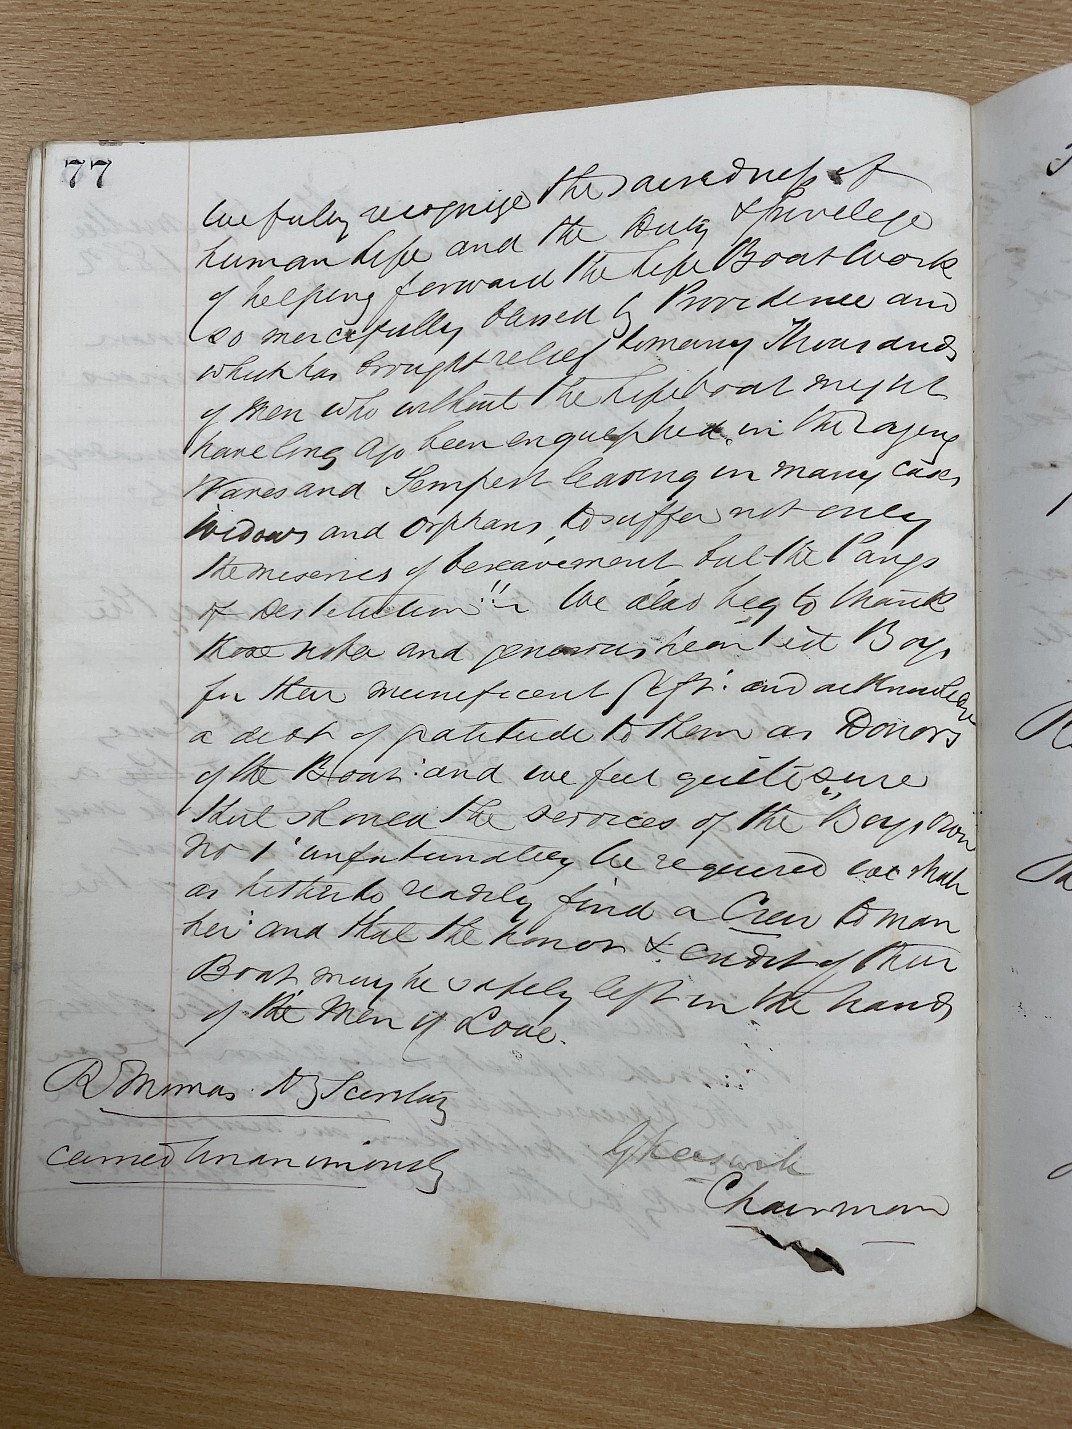 77
we fully recognize the sacredness of
human life and the Duty & Privelege
of helping forward the Life Boat Work
so mercifully blessed by Providence and
which has brought relief to many Thousands
of men who without the Lifeboat might
have long ago been engulphed in the raging
Waves and Tempest leaving in many cases
Widows and Orphans, to suffer not only
the miseries of bereavement but the Pangs
of Destitution!! We also beg to thank
those noble and generous hearted Boys
for their munificent Gift: and acknowledge
a debt of gratitude to them as Donors
of the Boat: and we feel quite sure
that should the services of the "Boys Own
No 1" unfortunately be required we shall
as hitherto readily find a Crew to man
her: and that the honor & credit of their
Boat may be safely left in the hands
of the Men of Looe.
R Thomas Hy Secretary
carried unanimously
Chairman